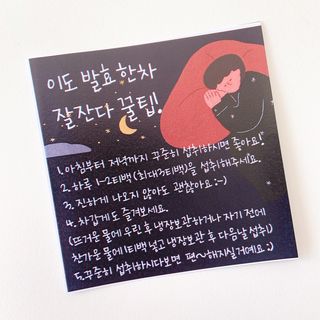 이도 발효 한차
잘잔다 꿀팁!
1. 아침부터 저녁까지 꾸준히 섭취하시면 좋아요!
2. 하루 1~2티백 (최대3티백)을 섭취해주세요.
3. 진하게 나오지 않아도 괜찮아요 :-)
4. 차갑게도 즐겨보세요.
(뜨거운 물에 우린 후 냉장보관 하거나 자기 전에
찬가운 물에 1티백 넣고 냉장보관 후 다음날 섭취)
5. 꾸준히 섭취하시다보면 편~해지실거예요 :)